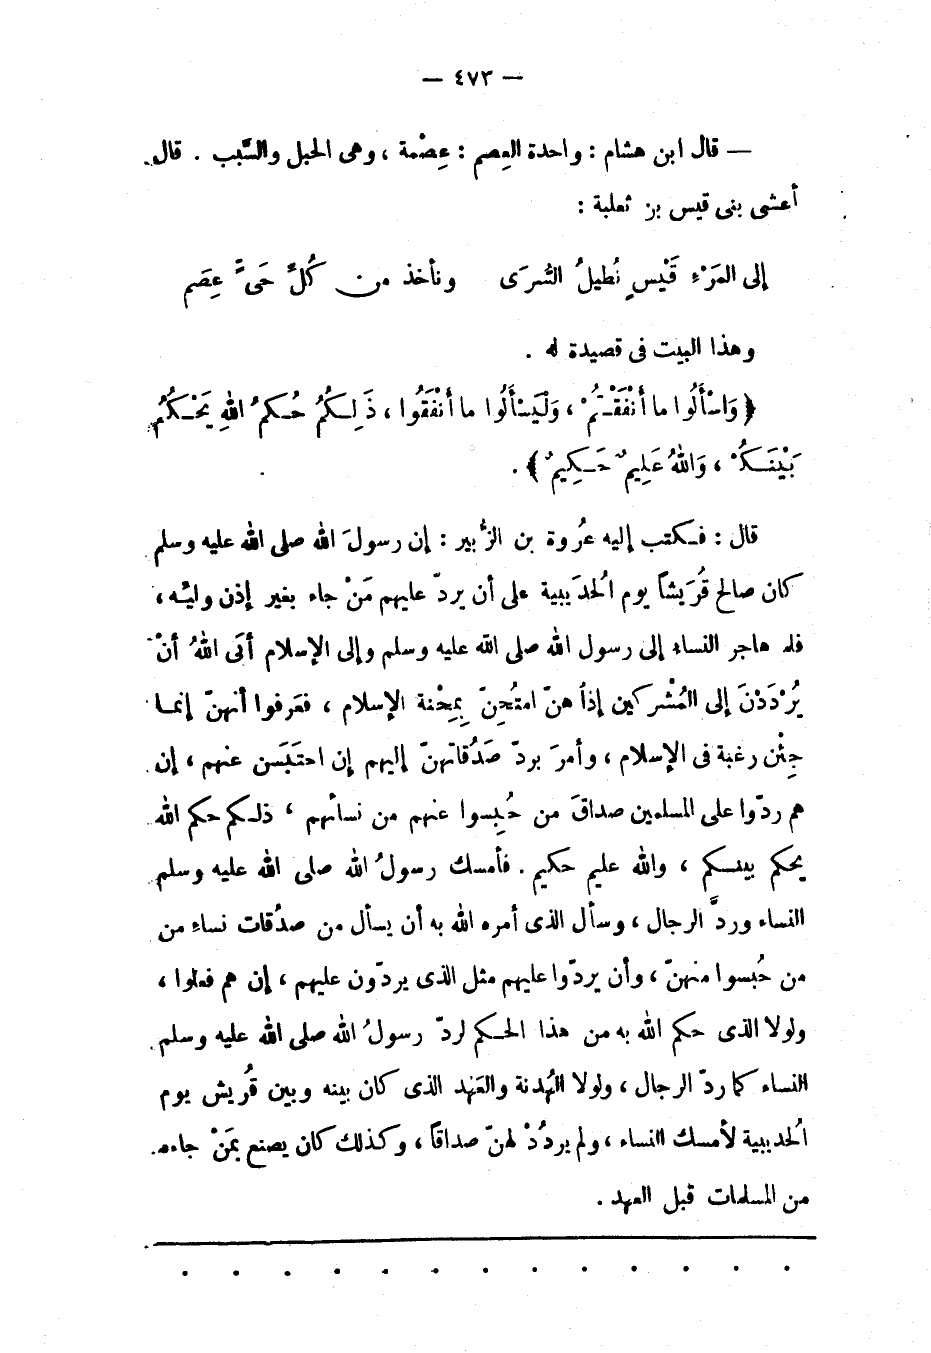 — ٤٧٣ —
— قال ابن هشام : واحدة العِصم : عِصْمة ، وهى الحبل والسَّبب . قال
أعشى بنى قيس بن ثعلبة :
إلى المَرْءِ قَيْسٍ نُطيلُ السُّرَى ونأخذ من كُلِّ حَىٍّ عِصَم
وهذا البيت فى قصيدة له .
﴿ وَاسْأَلُوا ما أَنْفَقْتُمْ ، وَلْيَسْأَلُوا ما أَنْفَقُوا ، ذَلِكُمُ حُكمُ اللهِ يَحْكُمُ
بَيْنَكُمْ ، وَاللهُ عَلِيمٌ حَكِيمٌ ﴾ .
قال : فكتب إليه عُروة بن الزُّبير : إن رسولَ الله صلى الله عليه وسلم
كان صالح قُرَيشاً يوم الُحدَيبية على أن يردّ عليهم مَنْ جاء بغير إذن وليِّه ،
فلما هاجر النساء إلى رسول الله صلى الله عليه وسلم وإلى الإسلام أبَى اللهُ أنْ
يُرْدَدْنَ إلى المُشركين إذا هنّ امتُحِنّ بِمِحْنة الإسلام ، فعَرفوا أنهنّ إنما
جِئْن رغبة فى الإسلام ، وأمرَ بردّ صَدُقاتهنّ إليهم إن احتَبَسن عنهم ، إن
هم ردّوا على المسلمين صداقَ من حُبِسوا عنهم من نسائهم ، ذلكم حكم الله
يحكم بينكم ، والله عليم حكيم . فأمسك رسولُ الله صلى الله عليه وسلم
النساء وردَّ الرجال ، وسأل الذى أمره الله به أن يسأل من صدُقات نساءِ من
من حُبسوا منهنّ ، وأن يردّوا عليهم مثل الذى يردّون عليهم ، إن هم فعلوا ،
ولولا الذى حكم الله به من هذا الحكم لردّ رسولُ الله صلى الله عليه وسلم
النساء كما ردّ الرجال ، ولولا الهُدنة والعَهد الذى كان بينه وبين قُريش يوم
الُحديبية لأمسك النساء ، ولم يردُدْ لهنّ صداقاً ، وكذلك كان يصنع بمَنْ جاءه
من المسلمات قبل العهد .